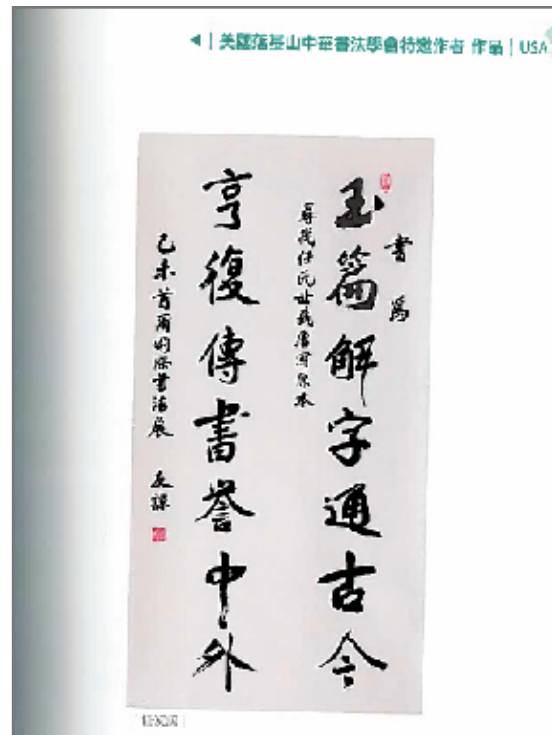 美國落杉山中華書法學會特邀作者 作品 | USA
書為
玉篇解字通古今
亨復傳書譽中外
己未首爾國際書法展